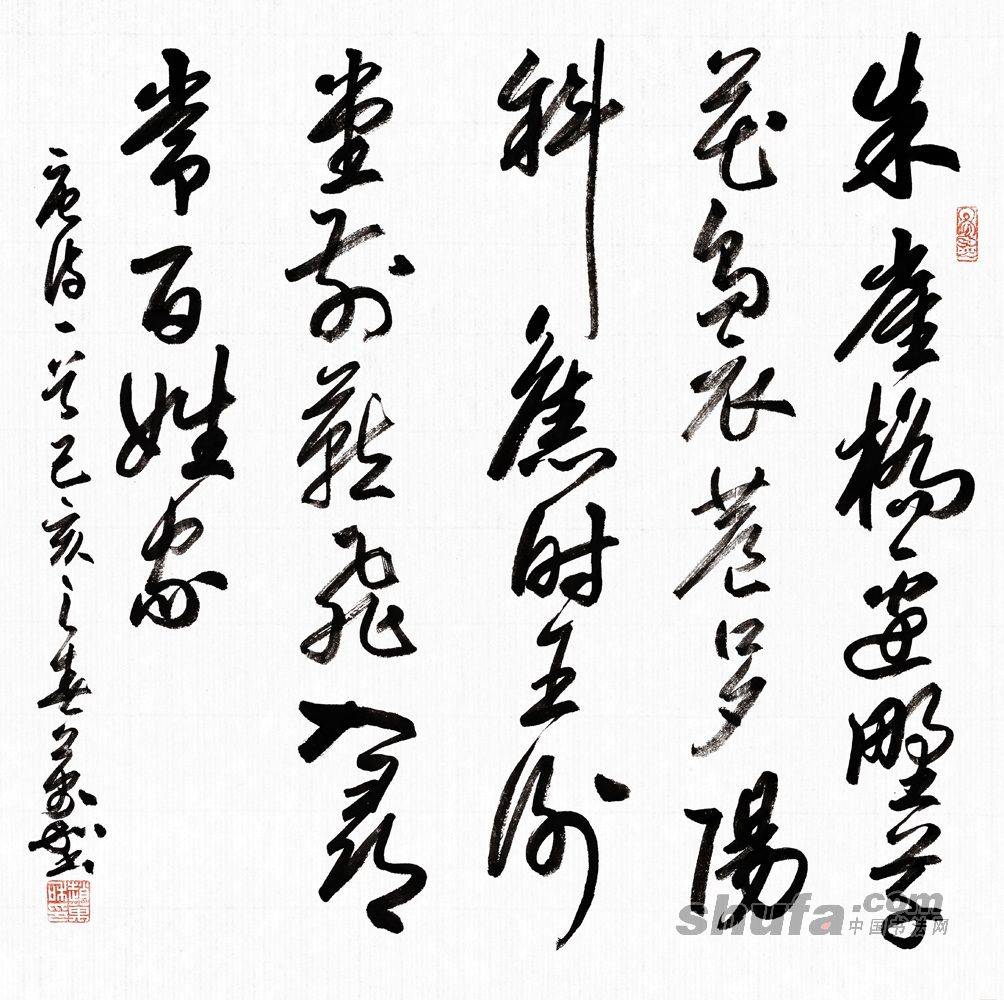 朱雀橋邊野草
花烏衣巷口夕陽
斜舊时王謝
堂前燕飛入尋
常百姓家
唐诗一首己亥之春
shufa.com
中国书法网